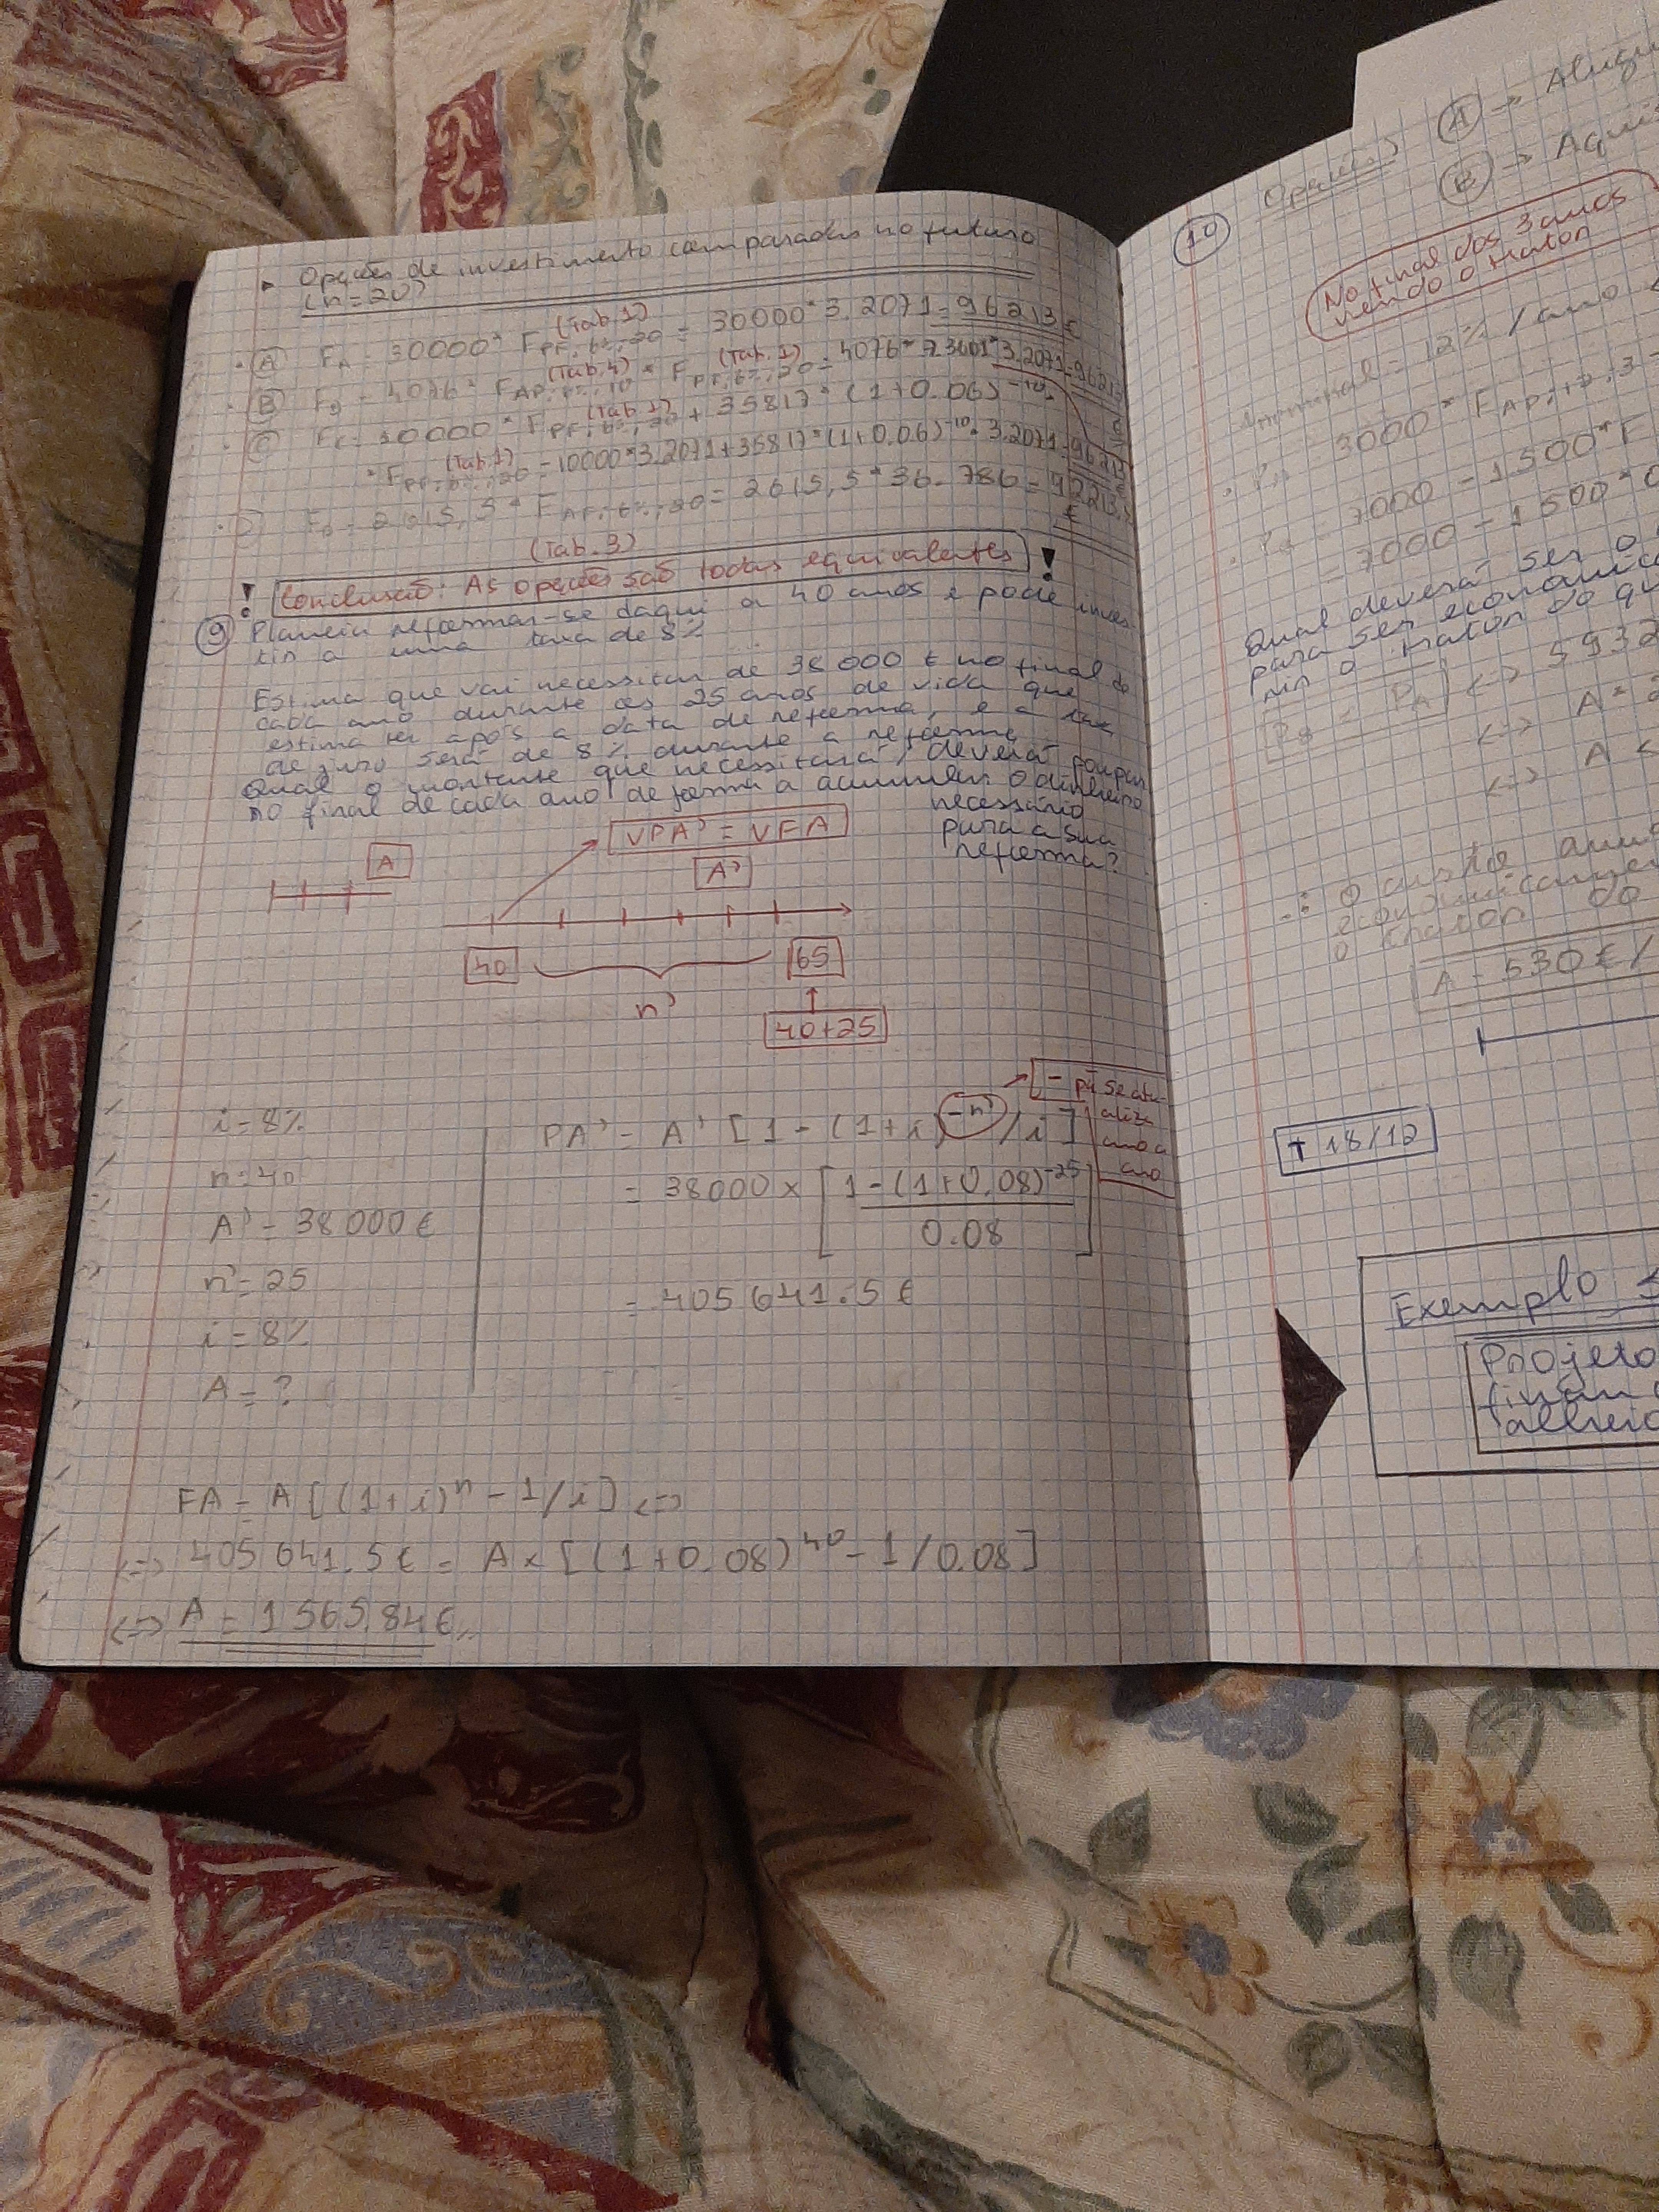 ▸ Opções de investimento comparadas no futuro
(n=20)
(Tab.1)
• A F_A = 30000 * F_PF,6%,20 = 30000 * 3.2071 = 96213 €
(Tab.4) (Tab.1)
• B F_B = 4076 * F_AP,6%,10 * F_PF,6%,20 = 4076 * 7.3601 * 3.2071 = 96213 €
(Tab.1)
• C F_C = 10000 * F_PF,6%,20 + 35817 * (1+0.06)^-10 *
(Tab.1)
* F_PF,6%,20 = 10000 * 3.2071 + 35817 * (1+0.06)^-10 * 3.2071 = 96213 €
• D F_D = 2615,5 * F_AF,6%,20 = 2615,5 * 36.786 = 92213,5 €
(Tab.3)
! Conclusão: As opções são todas equivalentes !
9 Planeia reformar-se daqui a 40 anos e pode inves-
tir a uma taxa de 8%
Estima que vai necessitar de 38 000 € no final de
cada ano durante os 25 anos de vida que
estima ter após a data de reforma, e a taxa
de juro será de 8% durante a reforma
Qual o montante que necessitará, deverá poupar
no final de cada ano de forma a acumular o dinheiro
necessário
para a sua
reforma?
VPA' = VFA
A
A'
40
65
n'
40+25
i = 8%
n = 40
A' = 38 000 €
n' = 25
i = 8%
A = ?
- pq se atu-
aliza
ano a
ano
PA' = A' [1 - (1+i)^-n' / i]
= 38000 × [1 - (1+0.08)^-25 / 0.08]
= 405 641.5 €
FA = A [(1+i)^n - 1/i] <=>
<=> 405 641.5 € = A × [(1+0.08)^40 - 1/0.08]
<=> A = 1 565.84 €,,
10 Opções
A →
B →
No final dos 3 anos
vendo o traton
i nominal = 12% / ano
3000 * F_AP,12%,3 =
7000 - 1500 * F
= 7000 - 1500 * 0
Qual deverá ser o
para ser
rir o traton do qu
P_B = P_A <=> 5932
<=> A * 2
<=> A ≤
∴ O custo
o traton do
A = 530 € /
T 18/12
Exemplo
Projeto